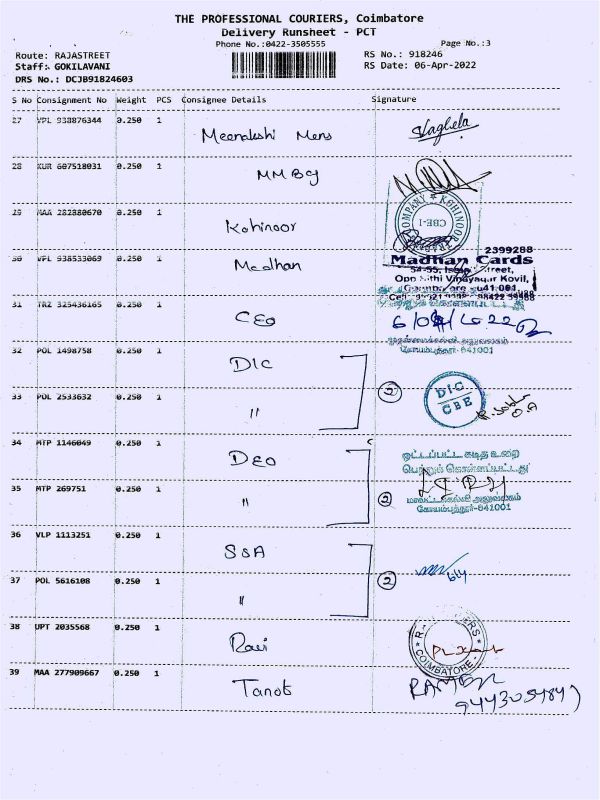 THE PROFESSIONAL COURIERS, Coimbatore
Delivery Runsheet - PCT
Phone No.:0422-3505555
Page No.:3
Route: RAJASTREET
Staff: GOKILAVANI
DRS No.: DCJB91824603
RS No.: 918246
RS Date: 06-Apr-2022
S No Consignment No Weight PCS Consignee Details Signature
27 VPL 938876344 0.250 1 Meenakshi Mens Vaghela
28 KUR 607518031 0.250 1 MMBG
29 MAA 282880670 0.250 1 Kohinoor
COMPANY ★ KOHINOOR
CBE-1
30 VPL 938533069 0.250 1 Madhan
2399288
Madhan Cards
54-55, Street,
Opp Vinayagar Kovil,
641 001
31 TRZ 325436165 0.250 1 CEO
6/04/2022
கோயம்புத்தூர்-641001
32 POL 1498758 0.250 1 DIC
33 POL 2533632 0.250 1 "
2
DIC
CBE
34 MTP 1146049 0.250 1 DEO
ஒட்டப்பட்ட கடித உறை
பெற்றுக் கொள்ளப்பட்டது
35 MTP 269751 0.250 1 "
2
மாவட்டக்கல்வி அலுவலகம்
கோயம்புத்தூர்-641001
36 VLP 1113251 0.250 1 SSA
37 POL 5616108 0.250 1 "
2
6/4
38 UPT 2035568 0.250 1 Ravi
COIMBATORE
39 MAA 277909667 0.250 1 Tanot